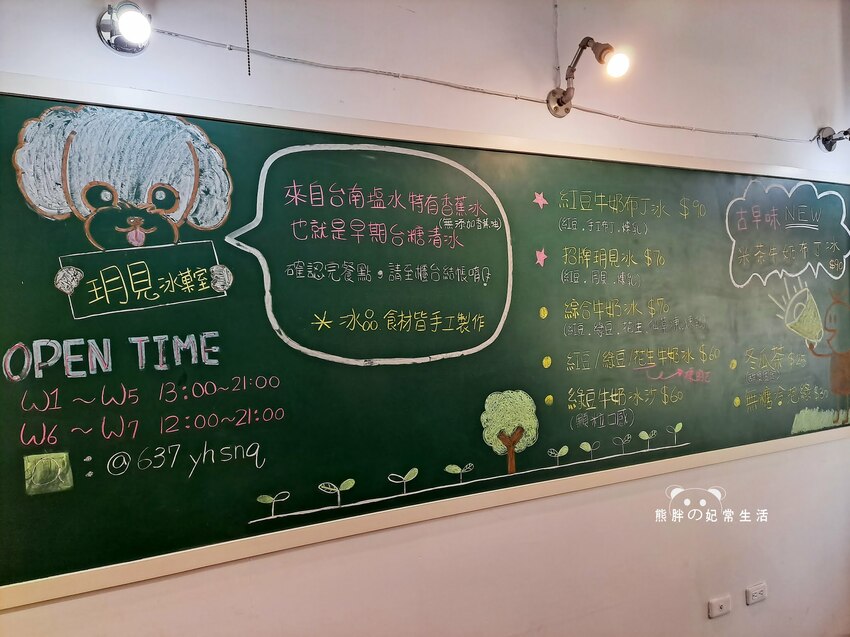 玥見冰菓室
OPEN TIME
W1～W5 13:00~21:00
W6～W7 12:00~21:00
: @637yhsnq
來自台南塩水特有香蕉冰
(無添加香蕉油)
也就是早期台糖清冰
確認完餐點，請至櫃台結帳唷!
冰品食材皆手工製作
紅豆牛奶布丁冰 $90
(紅豆．手工布丁．煉乳)
招牌玥見冰 $70
(紅豆．月見．煉乳)
綜合牛奶冰 $70
紅豆/綠豆/花生牛奶冰 $60
綠豆牛奶冰沙 $60
(顆粒口感)
古早味 NEW
米茶牛奶布丁冰
$90
冬瓜茶 $25
無糖
熊胖の妃常生活